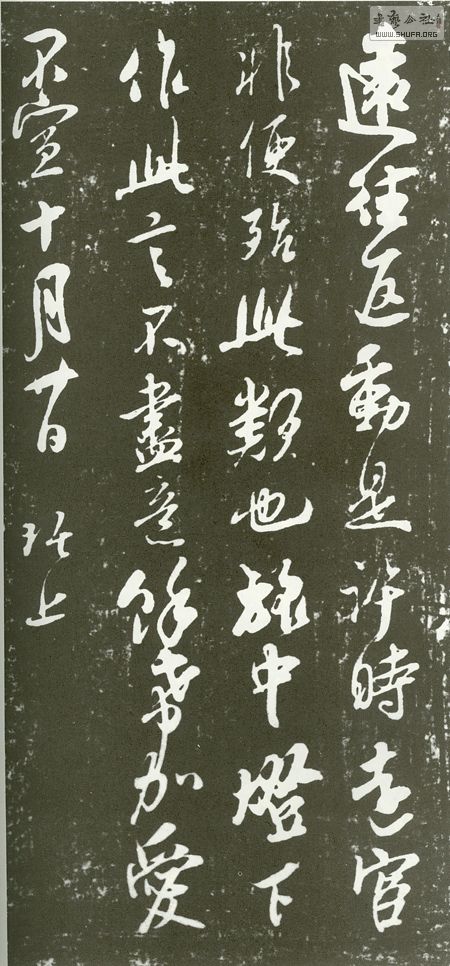 遠往返動是許時走官
非便殆此類也旅中燈下
作此言不盡意餘希加愛
不宣十月廿日 上
書藝公社
WWW.SHUFA.ORG